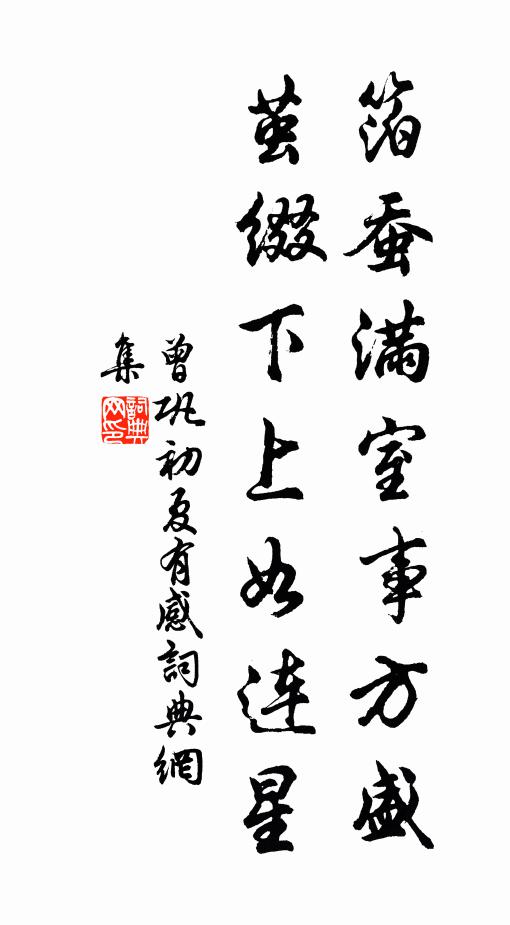 箔蚕满室事方盛
茧缀下上如连星
曾巩初夏有感詞典網
集
詞典
网印